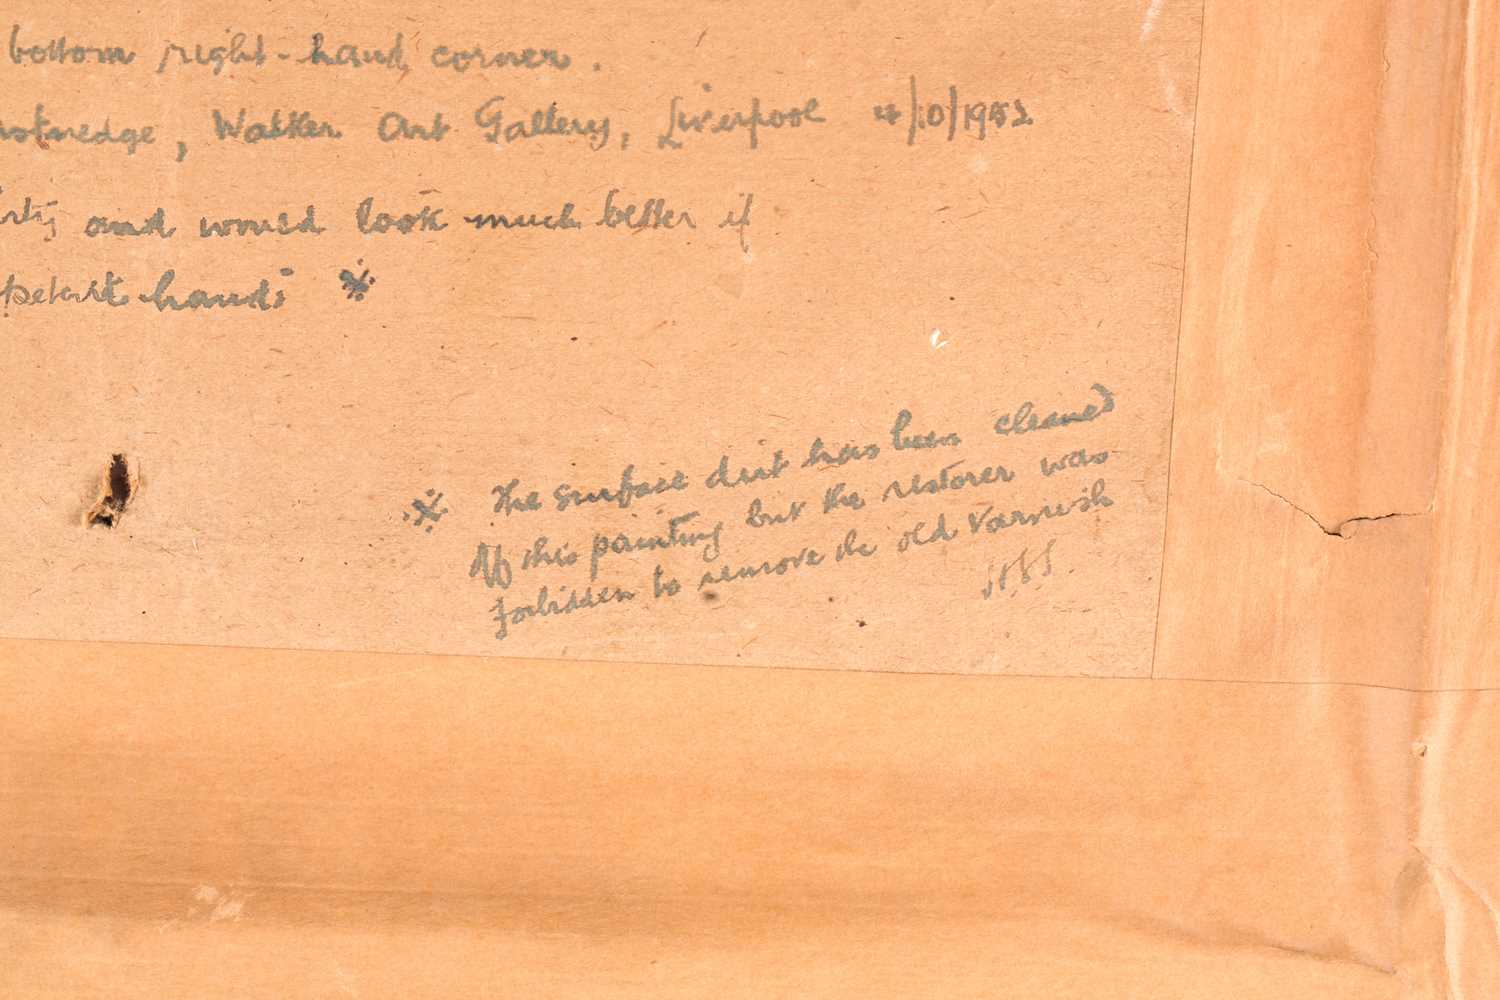 bottom right-hand corner.
Walker Art Gallery, Liverpool 4/10/1952
and would look much better if
hands ※
※ The surface dirt has been cleaned
Off this painting but the restorer was
forbidden to remove the old varnish